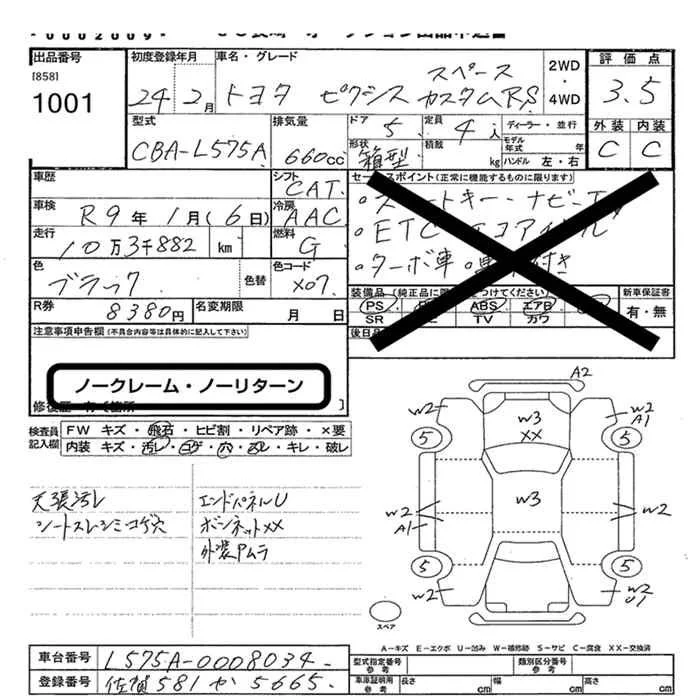 出品番号
[858]
1001
初度登録年月
24 2月
車名・グレード
トヨタ ピクシス スペース カスタムRS
2WD・4WD
評価点
3.5
型式
CBA-L575A
排気量
660cc
ドア 5 定員 4人
ディーラー・並行
形状 箱型 積載 kg
モデル年式 年
ハンドル 左・右
外装 内装
C C
車歴
シフト CAT
セールスポイント(正常に機能するものに限ります)
車検 R9年1月(6日)
冷房 AAC
走行 10万3千882 km
燃料 G
・ETC
・ターボ車
色 ブラック 色替
色コード X07
R券 8380円 名変期限 月 日
PS ABS エアB
SR TV カワ
新車保証書
有・無
注意事項申告欄(不具合内容等は具体的に記入して下さい)
ノークレーム・ノーリターン
検査員記入欄
FW キズ・飛石・ヒビ割・リペア跡・×要
内装 キズ・汚レ・コゲ・穴・スレ・キレ・破レ
天張汚レ
シートスレシミコゲ穴
エンドパネルU
ボンネットXX
外装アムラ
A2
W2 W3 XX W2 A1
5 5
W2 A1 W3 W2
5 5
W2 W2 U1
スペア
A−キズ E−エクボ U−凹み W−補修跡 S−サビ C−腐食 XX−交換済
車台番号 L575A-0008034
登録番号 佐賀 581 か 5665
型式指定番号 参考 類別区分番号 参考
車庫証明用 参考 長さ cm 幅 cm 高さ cm